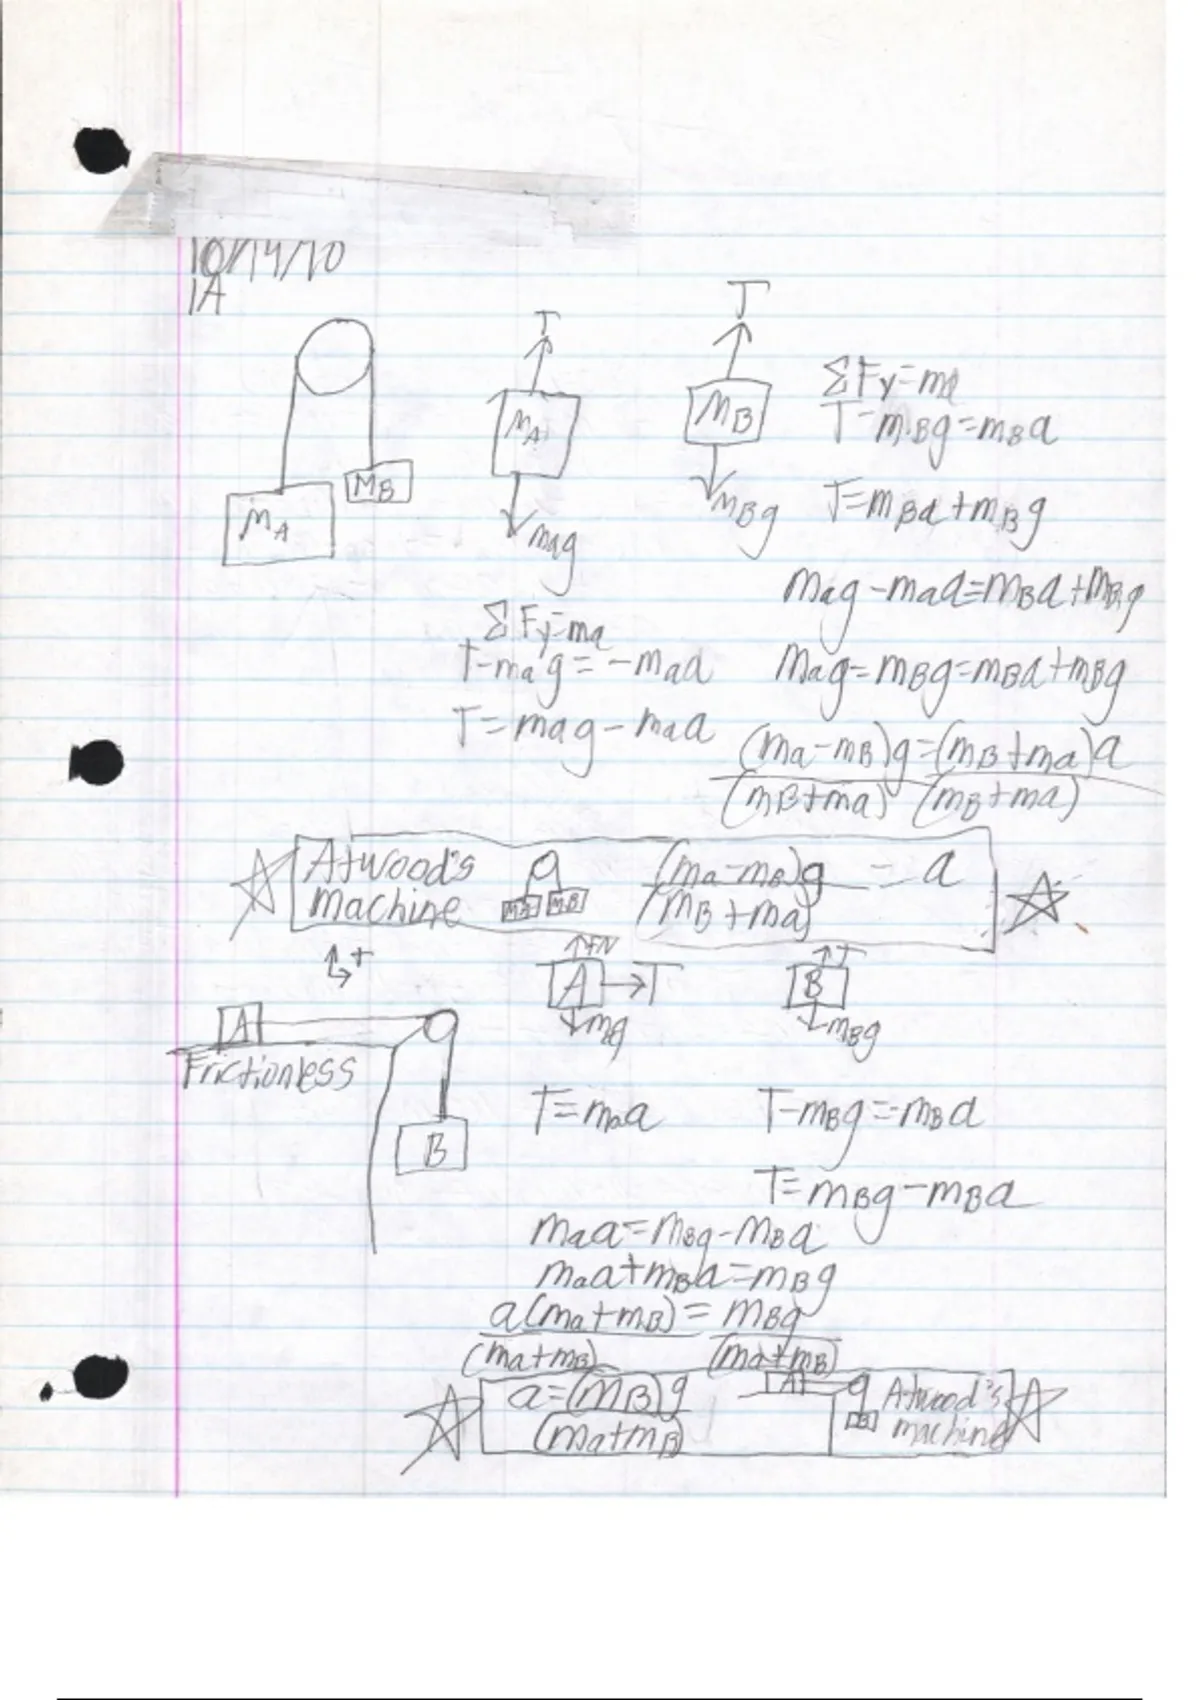 10/14/10
1A
T
T
M_A
M_B
M_A
M_B
m_ag
m_Bg
ΣFy=ma
T-m_Bg=m_Ba
T=m_Ba+m_Bg
ΣFy=ma
T-m_ag=-m_aa
T=m_ag-m_aa
m_ag-m_aa=m_Ba+m_Bg
m_ag=m_Bg=m_Ba+m_Bg
(m_a-m_B)g=(m_B+m_a)a
(m_B+m_a) (m_B+m_a)
Atwood's
machine
M_A M_B
(m_a-m_B)g = a
(m_B+m_a)
+
FN
A T
mg
T
B
m_Bg
A
Frictionless
B
T=m_aa
T-m_Bg=-m_Ba
T=m_Bg-m_Ba
m_aa=m_Bg-m_Ba
m_aa+m_Ba=m_Bg
a(m_a+m_B)=m_Bg
(m_a+m_B) (m_a+m_B)
a=(m_B)g
(m_a+m_B)
A
B
Atwood's
machine